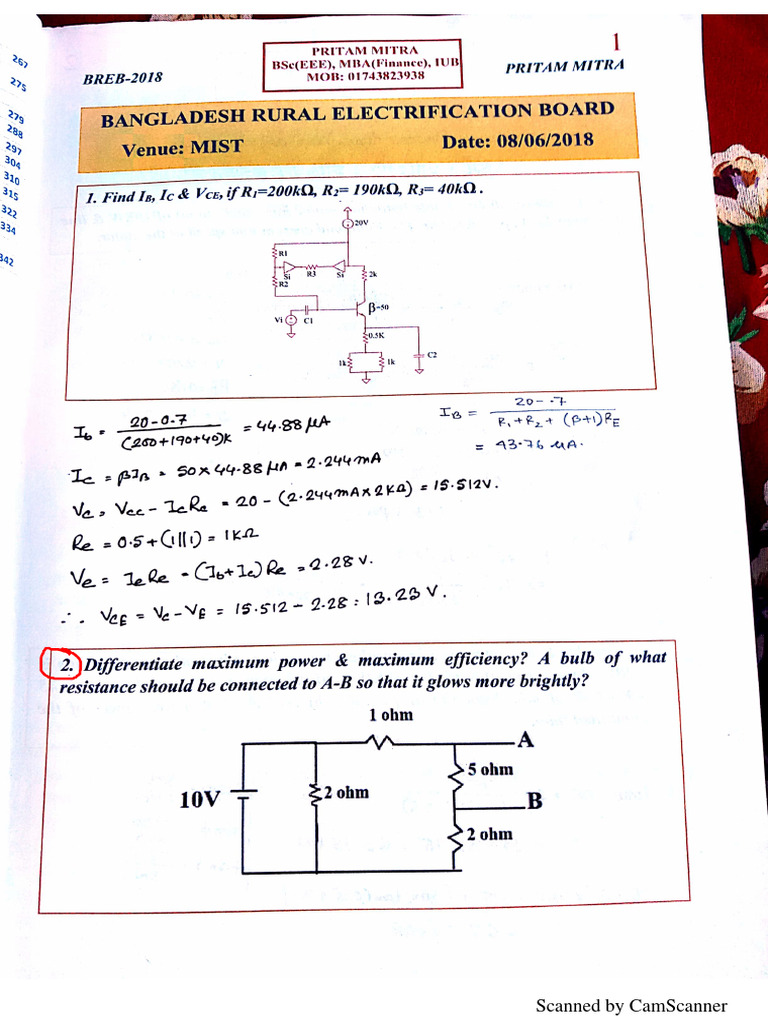 267
275
279
288
297
304
310
315
322
334
342
1
PRITAM MITRA
BSc(EEE), MBA(Finance), IUB
MOB: 01743823938
BREB-2018
PRITAM MITRA
BANGLADESH RURAL ELECTRIFICATION BOARD
Venue: MIST Date: 08/06/2018
1. Find IB, IC & VCE, if R1=200kΩ, R2= 190kΩ, R3= 40kΩ .
20V
R1
Si R3 Si 2k
R2
β=50
Vi C1
0.5K
1k 1k C2
Ib = 20-0.7 / (200+190+40)K = 44.88 μA
IB = 20-.7 / R1+R2+(β+1)RE
= 43.76 μA.
Ic = βIB = 50×44.88 μA = 2.244mA
Vc = Vcc - IcRc = 20 - (2.244mA×2KΩ) = 15.512V.
Re = 0.5+(1||1) = 1KΩ
Ve = IeRe = (Ib+Ic)Re = 2.28 V.
∴ VCE = Vc-VE = 15.512 - 2.28 = 13.23 V.
2. Differentiate maximum power & maximum efficiency? A bulb of what
resistance should be connected to A-B so that it glows more brightly?
1 ohm
A
5 ohm
10V 2 ohm B
2 ohm
Scanned by CamScanner